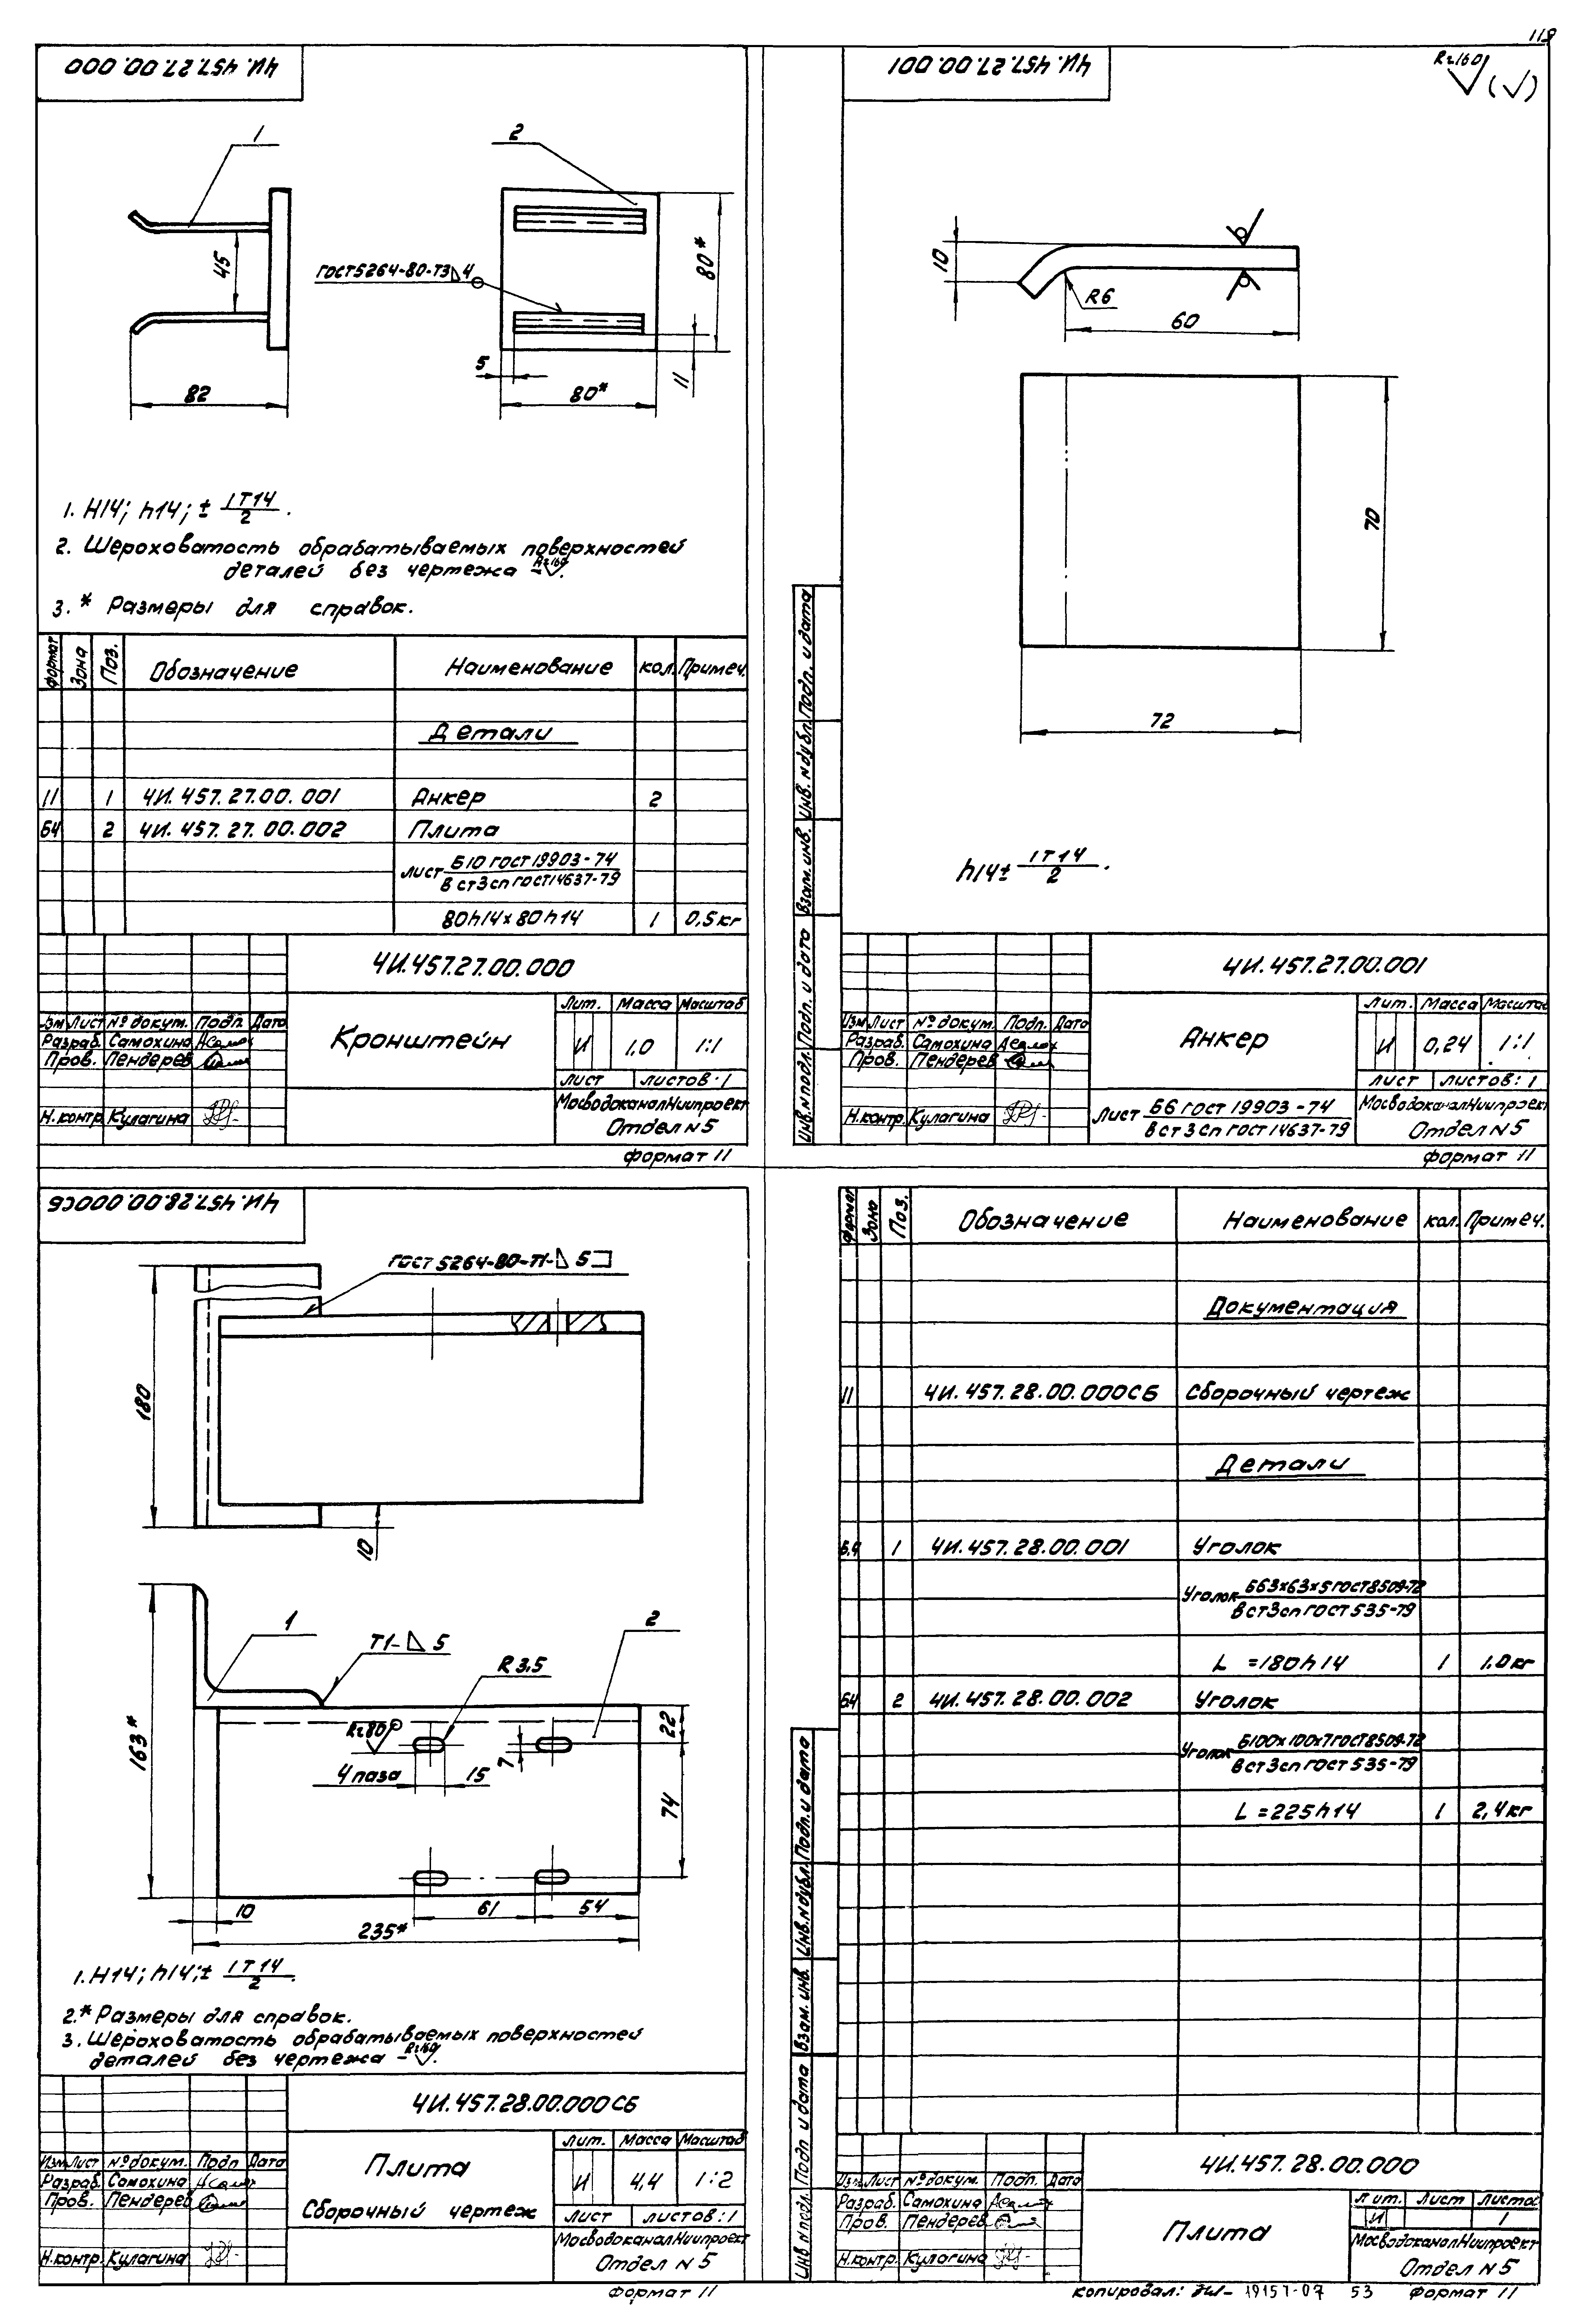 118
4И.457.27.00.000
1
2
45
82
ГОСТ5264-80-Т3⊿4
80*
11
5
80*
1. H14; h14; ± IT14/2.
2. Шероховатость обрабатываемых поверхностей
деталей без чертежа – Rz160.
3. * Размеры для справок.
Формат Зона Поз. Обозначение Наименование кол. Примеч.
Детали
11 1 4И.457.27.00.001 Анкер 2
Б4 2 4И.457.27.00.002 Плита
Лист Б10 ГОСТ 19903-74
В ст3сп ГОСТ14637-79
80h14х80h14 1 0,5кг
4И.457.27.00.000
Кронштейн
Лит. Масса Масштаб
И 1,0 1:1
Лист Листов·1
МосводоканалНиипроект
Отдел N5
Изм Лист № докум. Подп Дата
Разраб. Самохина
Пров. Пендерев
Н.контр. Кулагина
Формат 11
4И.457.27.00.001
Rz160 (√)
10
R6
60
70
72
h14± IT14/2.
Инв.№подл. Подп. и дата Взам.инв. Инв.№дубл. Подп. и дата
4И.457.27.00.001
Анкер
Лит. Масса Масштаб
И 0,24 1:1
Лист Листов:1
Лист Б6 ГОСТ 19903-74
В ст 3 сп ГОСТ 14637-79
МосводоканалНиипроект
Отдел N5
Изм Лист № докум. Подп. Дата
Разраб. Самохина
Пров. Пендерев
Н.контр. Кулагина
Формат 11
4И.457.28.00.000СБ
ГОСТ 5264-80-Т1-⊿5
180
10
1
Т1-⊿5
R 3,5
2
163*
Rz80
4 паза
15
7
22
74
10
61
54
235*
1. H14; h14; ± IT14/2.
2.* Размеры для справок.
3. Шероховатость обрабатываемых поверхностей
деталей без чертежа – Rz160.
4И.457.28.00.000СБ
Плита
Сборочный чертеж
Лит. Масса Масштаб
И 4,4 1:2
Лист Листов:1
МосводоканалНиипроект
Отдел N5
Изм Лист № докум. Подп Дата
Разраб. Самохина
Пров. Пендерев
Н.контр. Кулагина
Формат 11
Формат Зона Поз. Обозначение Наименование кол. Примеч.
Документация
11 4И.457.28.00.000СБ Сборочный чертеж
Детали
Б4 1 4И.457.28.00.001 Уголок
Уголок Б63х63х5ГОСТ8509-72
В ст3сп ГОСТ 535-79
L =180h14 1 1,0кг
Б4 2 4И.457.28.00.002 Уголок
Уголок Б100х100х7ГОСТ8509-72
В ст3сп ГОСТ 535-79
L =225h14 1 2,4кг
Инв.№подл. Подп и дата Взам. инв. Инв.№дубл. Подп. и дата
4И.457.28.00.000
Плита
Лит. Лист Листов
И 1
МосводоканалНиипроект
Отдел N5
Изм Лист № докум. Подп. Дата
Разраб. Самохина
Пров. Пендерев
Н.контр. Кулагина
Копировал: 19157-07 53 Формат 11